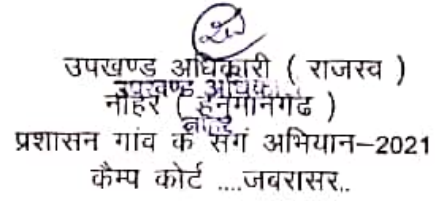 उपखण्ड अधिकारी ( राजस्व )
नोहर ( हनुमानगढ )
प्रशासन गांव के संग अभियान–2021
कैम्प कोर्ट ....जबरासर..